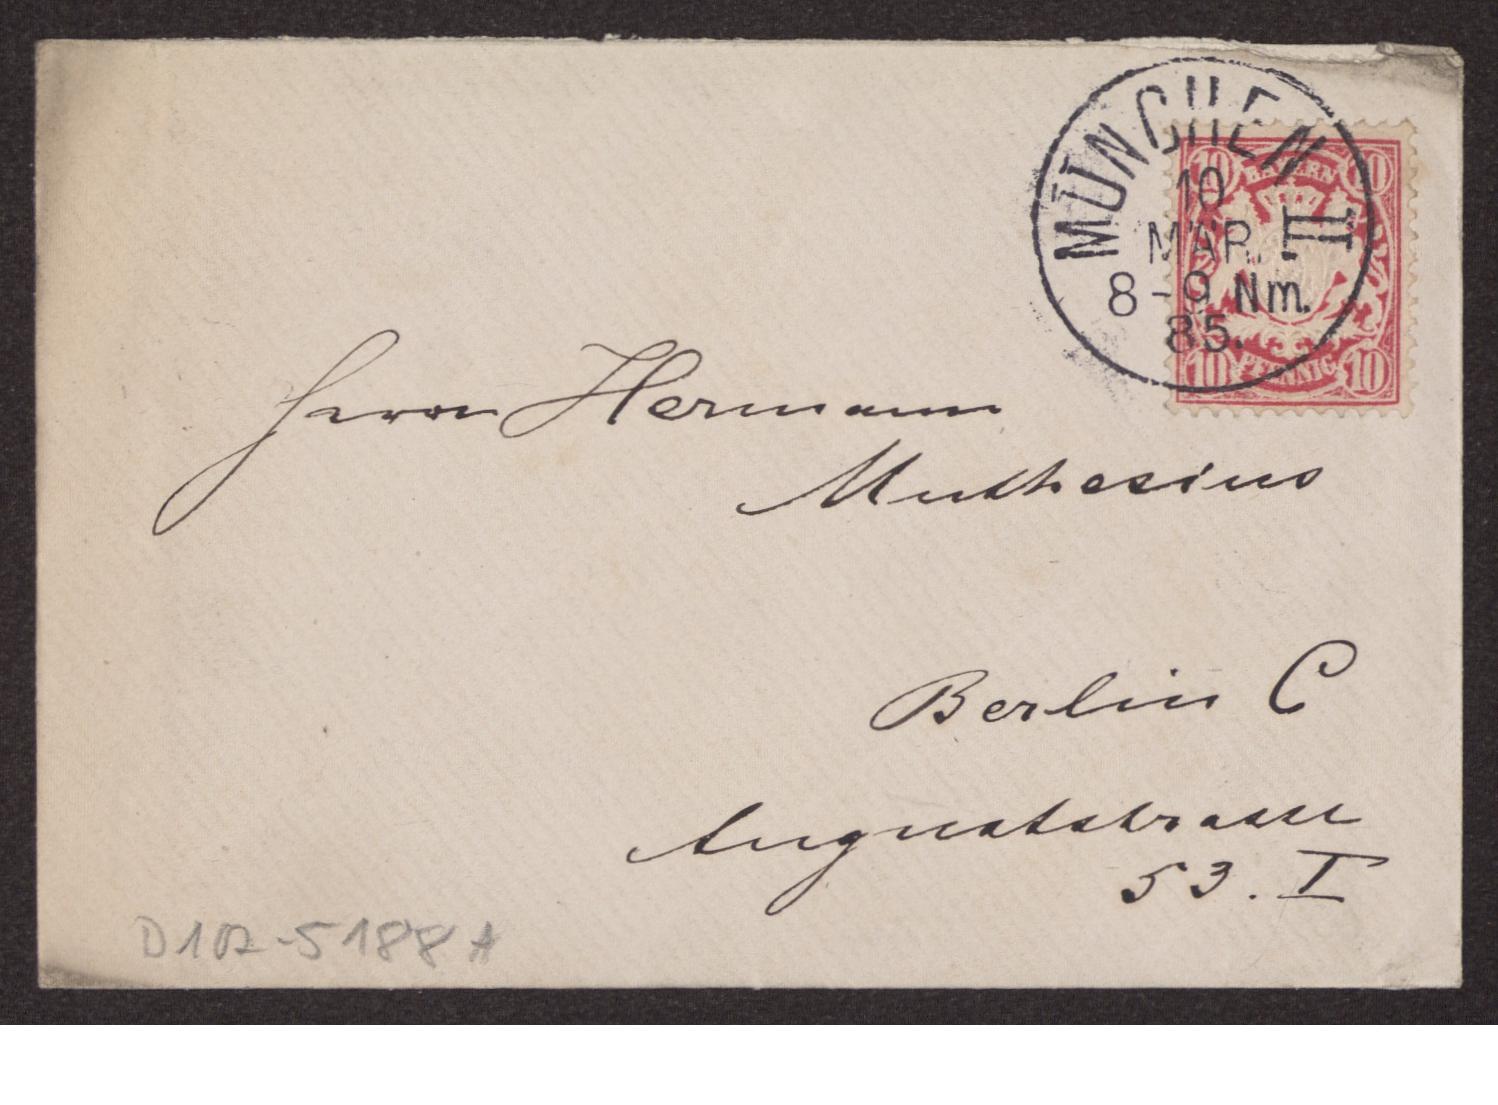 MÜNCHEN II
10
MÄR.
8-9 Nm.
85.
10 BAYERN 10
10 PFENNIG 10
Herrn Hermann
Muthesius
Berlin C
Auguststrasse
53. I
D102-5188 A